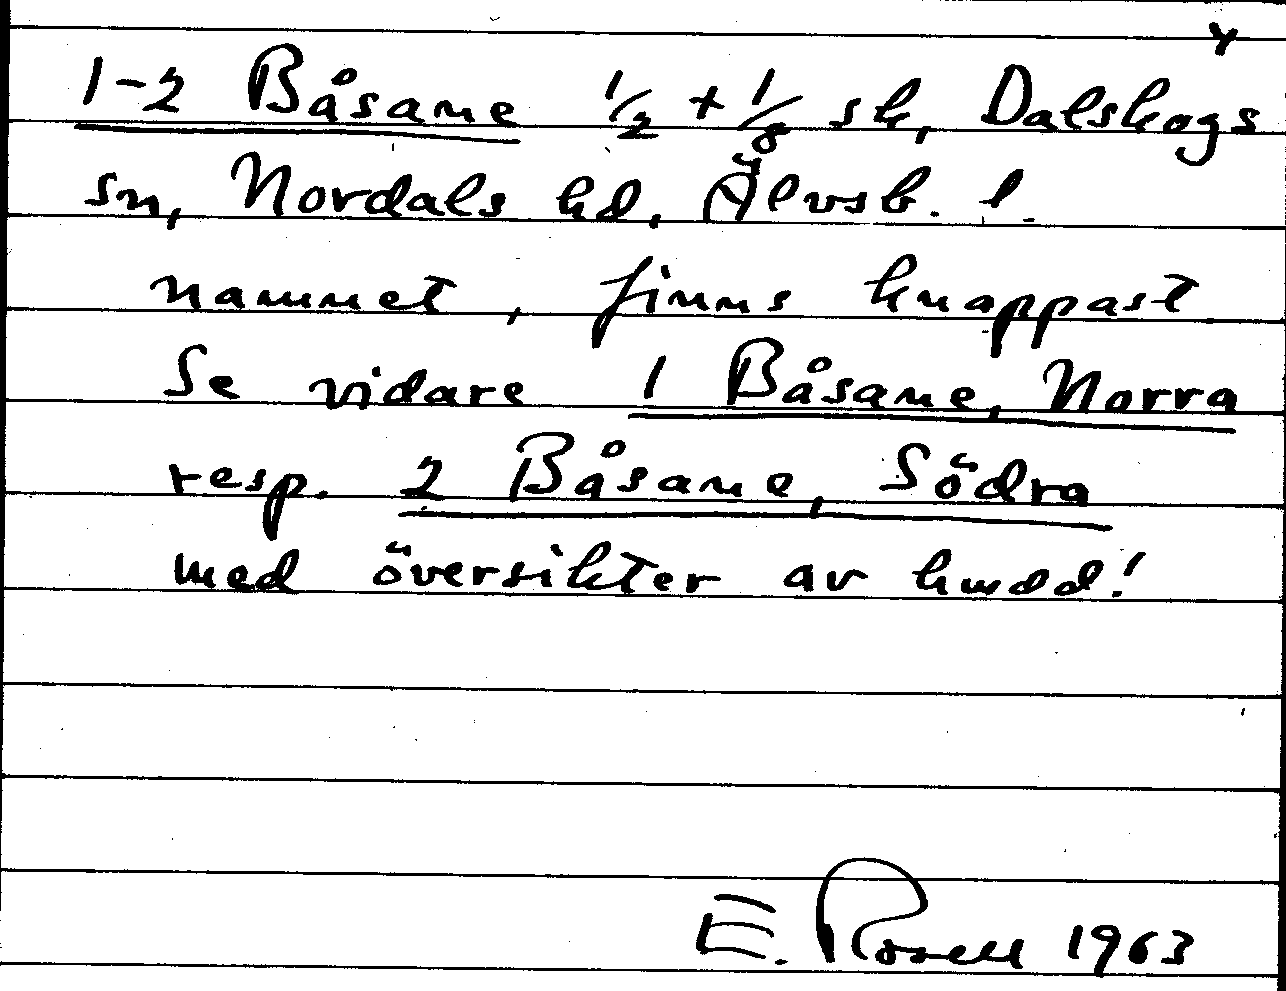 1-2 Båsane 1/2 + 1/8 sk, Dalskogs
sn, Nordals hd, Älvsb. l.
namnet, finns knappast
Se vidare 1 Båsane, Norra
resp. 2 Båsane, Södra
med översikter av hmdd!
E. Rosell 1963